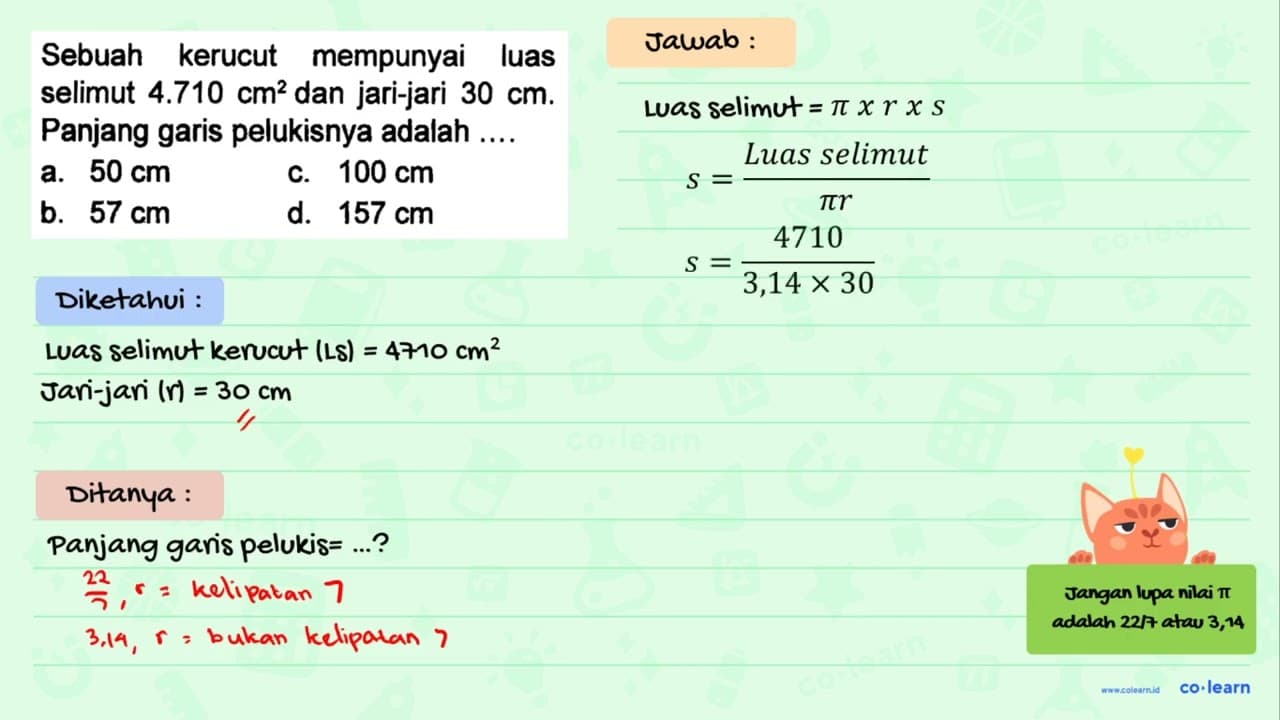 Sebuah kerucut mempunyai luas
selimut 4.710 cm² dan jari-jari 30 cm.
Panjang garis pelukisnya adalah ....
a. 50 cm c. 100 cm
b. 57 cm d. 157 cm
Diketahui :
Luas selimut kerucut (Ls) = 4710 cm²
Jari-jari (r) = 30 cm
Ditanya :
Panjang garis pelukis= ...?
22/7, r = kelipatan 7
3,14, r = bukan kelipatan 7
Jawab :
Luas selimut = π x r x s
s = Luas selimut / πr
s = 4710 / 3,14 × 30
Jangan lupa nilai π
adalah 22/7 atau 3,14
www.colearn.id co·learn
co·learn
co·learn
co·learn